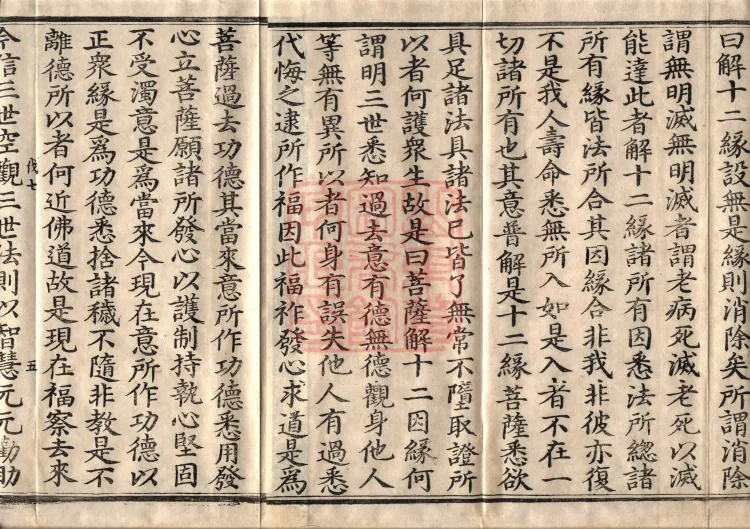 曰解十二緣設無是緣則消除矣所謂消除
謂無明滅無明滅者謂老病死滅老死以滅
能達此者解十二緣諸所有因悉法所緫諸
所有緣皆法所合其因緣合非我非彼亦復
不是我人壽命悉無所入如是入者不在一
切諸所有也其意普解是十二緣菩薩悉欲
具足諸法具諸法已皆了無常不墮取證所
以者何護衆生故是曰菩薩解十二因緣何
謂明三世悉知過去意有德無德觀身他人
等無有異所以者何身有誤失他人有過悉
代悔之逮所作福因此福祚發心求道是爲
菩薩過去功德其當來意所作功德悉用發
心立菩薩願諸所發心以護制持執心堅固
不受濁意是爲當來今現在意所作功德以
正衆緣是爲功德悉捨諸穢不隨非教是不
離德所以者何近佛道故是現在福察去來
伐七
五
今信三世空觀三世法則以智慧元元勸助